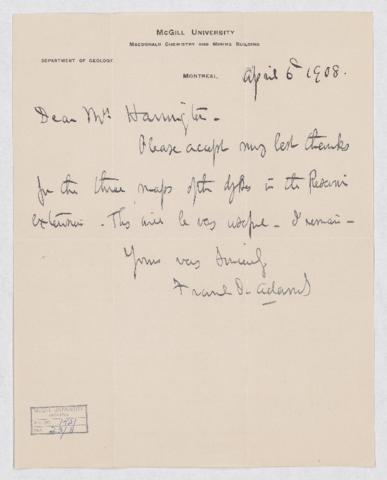 McGill University
Macdonald Chemistry and Mining Building
Department of Geology.
Montreal, April 6th 1908.
Dear Mrs Harrington -
Please accept my best thanks
for the three maps of the dykes in the Reservoir
extension - This will be very useful - I remain -
Yours very Sincerely
Frank D. Adams
McGILL UNIVERSITY
ARCHIVES